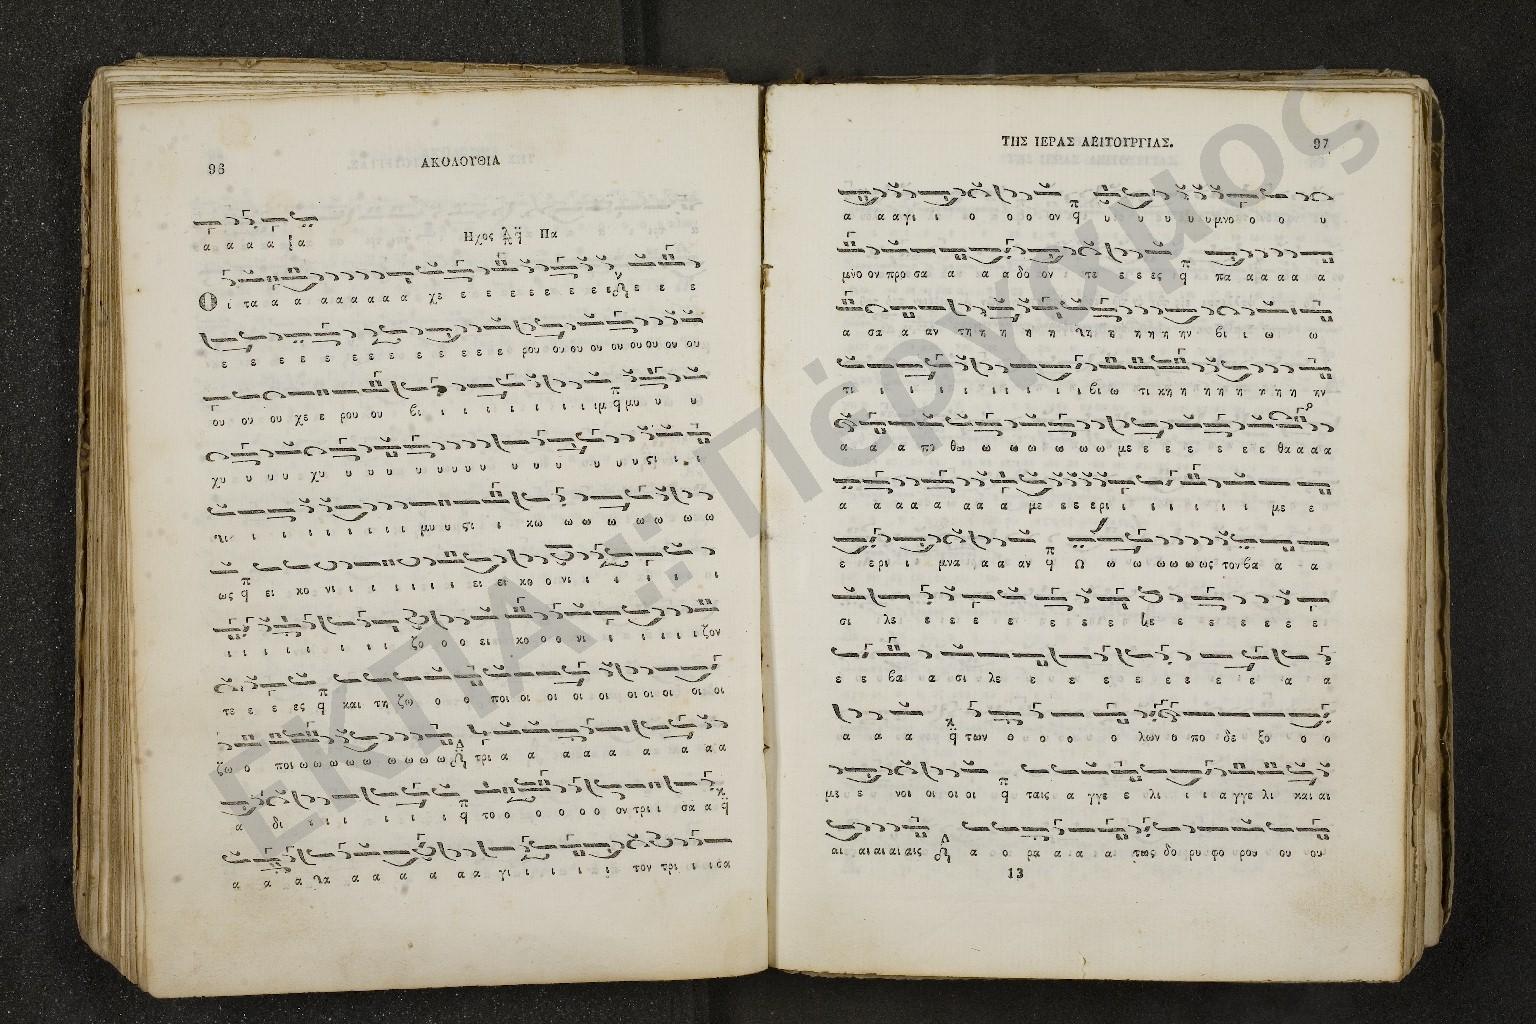 96
ΑΚΟΛΟΥΘΙΑ
α α α α α
Ηχος Πα
Οι τα α α α α α α α α χε ε ε ε ε ε ε ε ε ε ε ε
ε ε ε ε ε ε ε ε ε ε ε ε ρου ου ου ου ου ου ου ου ου
ου ου ου χε ε ρου ου βι ι ι ι ι ι ι ι ιμ μυ υ υ
χυ υ υ υ χυ υ υ υ υ υ υ υ υ υ υ υ υ υ ςι ι ι
ι ι ι ι ι ι ι μυ υ ςι ι ι κω ω ω ω ω ω ω
ως ει κο νι ι ι ι ι ι ει ει κο ο νι ι ι ι ι ι
ι ι ι ι ι ι ι ζο ο ο ει κο ο ο νι ι ι ι ι ι ζον
τε ε ε ες και τη ζω ο ο ποι οι οι οι οι οι οι οι οι οι
ζω ο ποι ω ω ω ω ω ω ω ω ω τρι α α α α α α α α α
α δι ι ι ι ι ι το ο ο ο ο ο ον τρι ι σα α
α α α α α α α α α α γι ι ι ι ι τον τρι ι ι σα
ΤΗΣ ΙΕΡΑΣ ΛΕΙΤΟΥΡΓΙΑΣ.
97
α α α γι ι ο ο ο ο ον υ υ υ υ υ υ μνο ο ο υ
μνο ον προ σα α α α δο ον ι τε ε ε ες πα α α α α α
α σα α αν τη η η η η η η η ην βι ι ω ω
τι ι ι ι ι ι ι ι ι βι ω τι κη η η η η η η η ην
α α α πο θω ω ω ω ω ω ω με ε ε ε ε ε ε θα α α α
α α α α α α α α με ε ε ε ρι ι ι ι ι ι ι με ε
ε ε ρι ι μνα α α αν Ω ω ω ω ω ω ως τον βα α α
σι λε ε ε ε ε ε ε ε ε ε ε ε ε ε
ε ε βα α σι λε ε ε ε ε ε ε ε ε α α
α α α των ο ο ο ο ο λων ο πο δε ξο ο ο
με ε νοι οι οι οι ταις α γγε ε λι ι ι α γγε λι και αι
αι αι αι αι αις α ο ρα α α α τως δο ρυ φο ρου ου ου
13
ΕΚΠΑ :: Πέργαμος